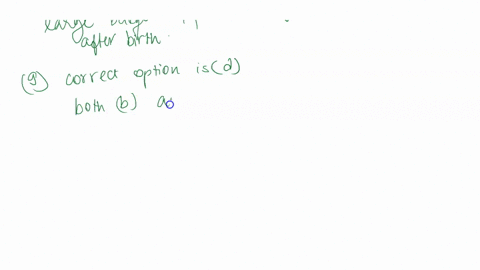 large
after birth.
(9) correct option is (d)
both (b) a